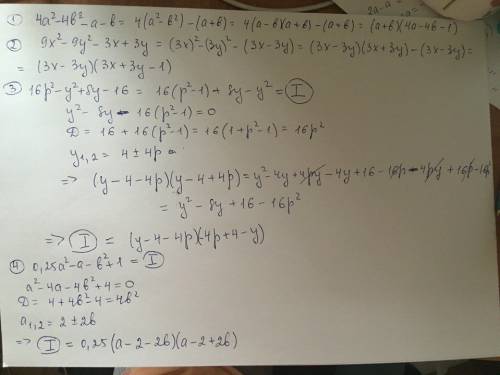 ① 4a²-4b²-a-b = 4(a²-b²)-(a+b) = 4(a-b)(a+b)-(a+b) = (a+b)(4a-4b-1)
② 9x²-9y²-3x+3y = (3x)²-(3y)²-(3x-3y) = (3x-3y)(3x+3y)-(3x-3y) =
= (3x-3y)(3x+3y-1)
③ 16p²-y²+8y-16 = 16(p²-1)+8y-y² = Ⓘ
y²-8y-16(p²-1)=0
D = 16+16(p²-1) = 16(1+p²-1) = 16p²
y₁,₂ = 4±4p
=> (y-4-4p)(y-4+4p) = y²-4y+4py-4y+16-16p-4py+16p-16p²
= y²-8y+16-16p²
=> Ⓘ = (y-4-4p)(-4p+4-y)
④ 0,25a²-a-b²+1 = Ⓘ
a²-4a-4b²+4=0
D = 4+4b²-4 = 4b²
a₁,₂ = 2±2b
=> Ⓘ = 0,25(a-2-2b)(a-2+2b)